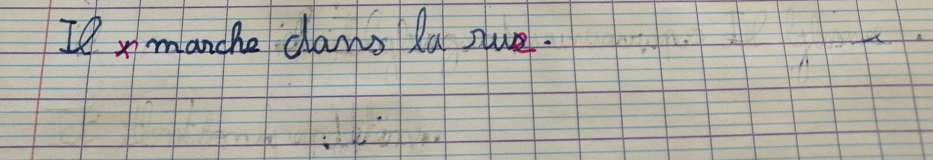 Il x marche dans la rue.